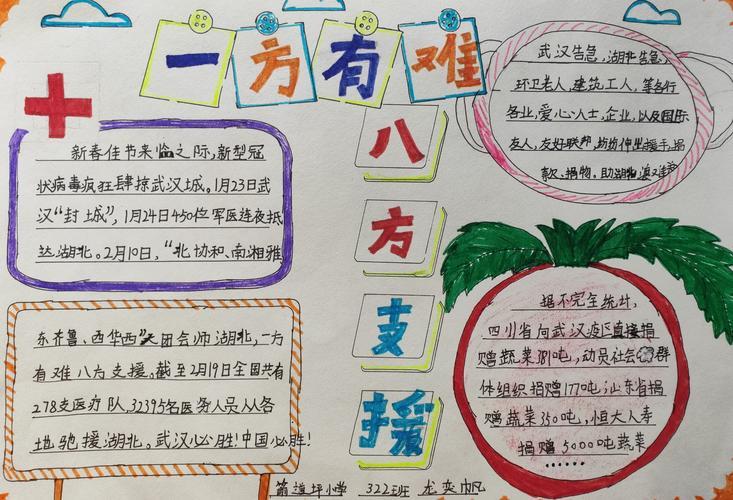 一方有难
八方支援
新春佳节来临之际,新型冠
状病毒疯狂肆掠武汉城。1月23日武
汉“封城”,1月24日450位军医连夜抵
达湖北。2月10日,“北协和、南湘雅
东齐鲁、西华西”大团会师湖北,一方
有难八方支援。截至2月19日全国共有
278支医疗队,32395名医务人员从各
地驰援湖北。武汉必胜!中国必胜!
武汉告急,湖北告急,
环卫老人,建筑工人,等各行
各业,爱心人士,企业,以及国际
友人,友好联邦,纷纷伸出援手,捐
款、捐物。助湖北渡难
据不完全统计,
四川省向武汉疫区直接捐
赠蔬菜391吨,动员社会群
体组织捐赠177吨,山东省捐
赠蔬菜350吨,恒大人寿
捐赠5000吨蔬菜
······
箭道坪小学 322班 龙奕帆